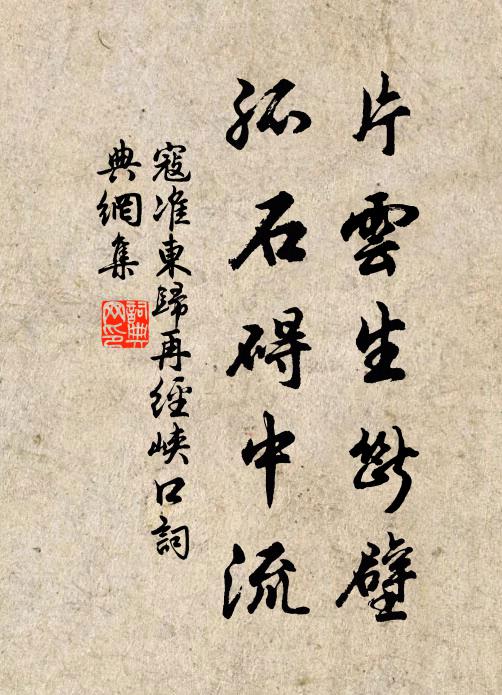 片雲生斷壁
孤石碍中流
寇准東歸再經峽口詞
典網集
詞典网印